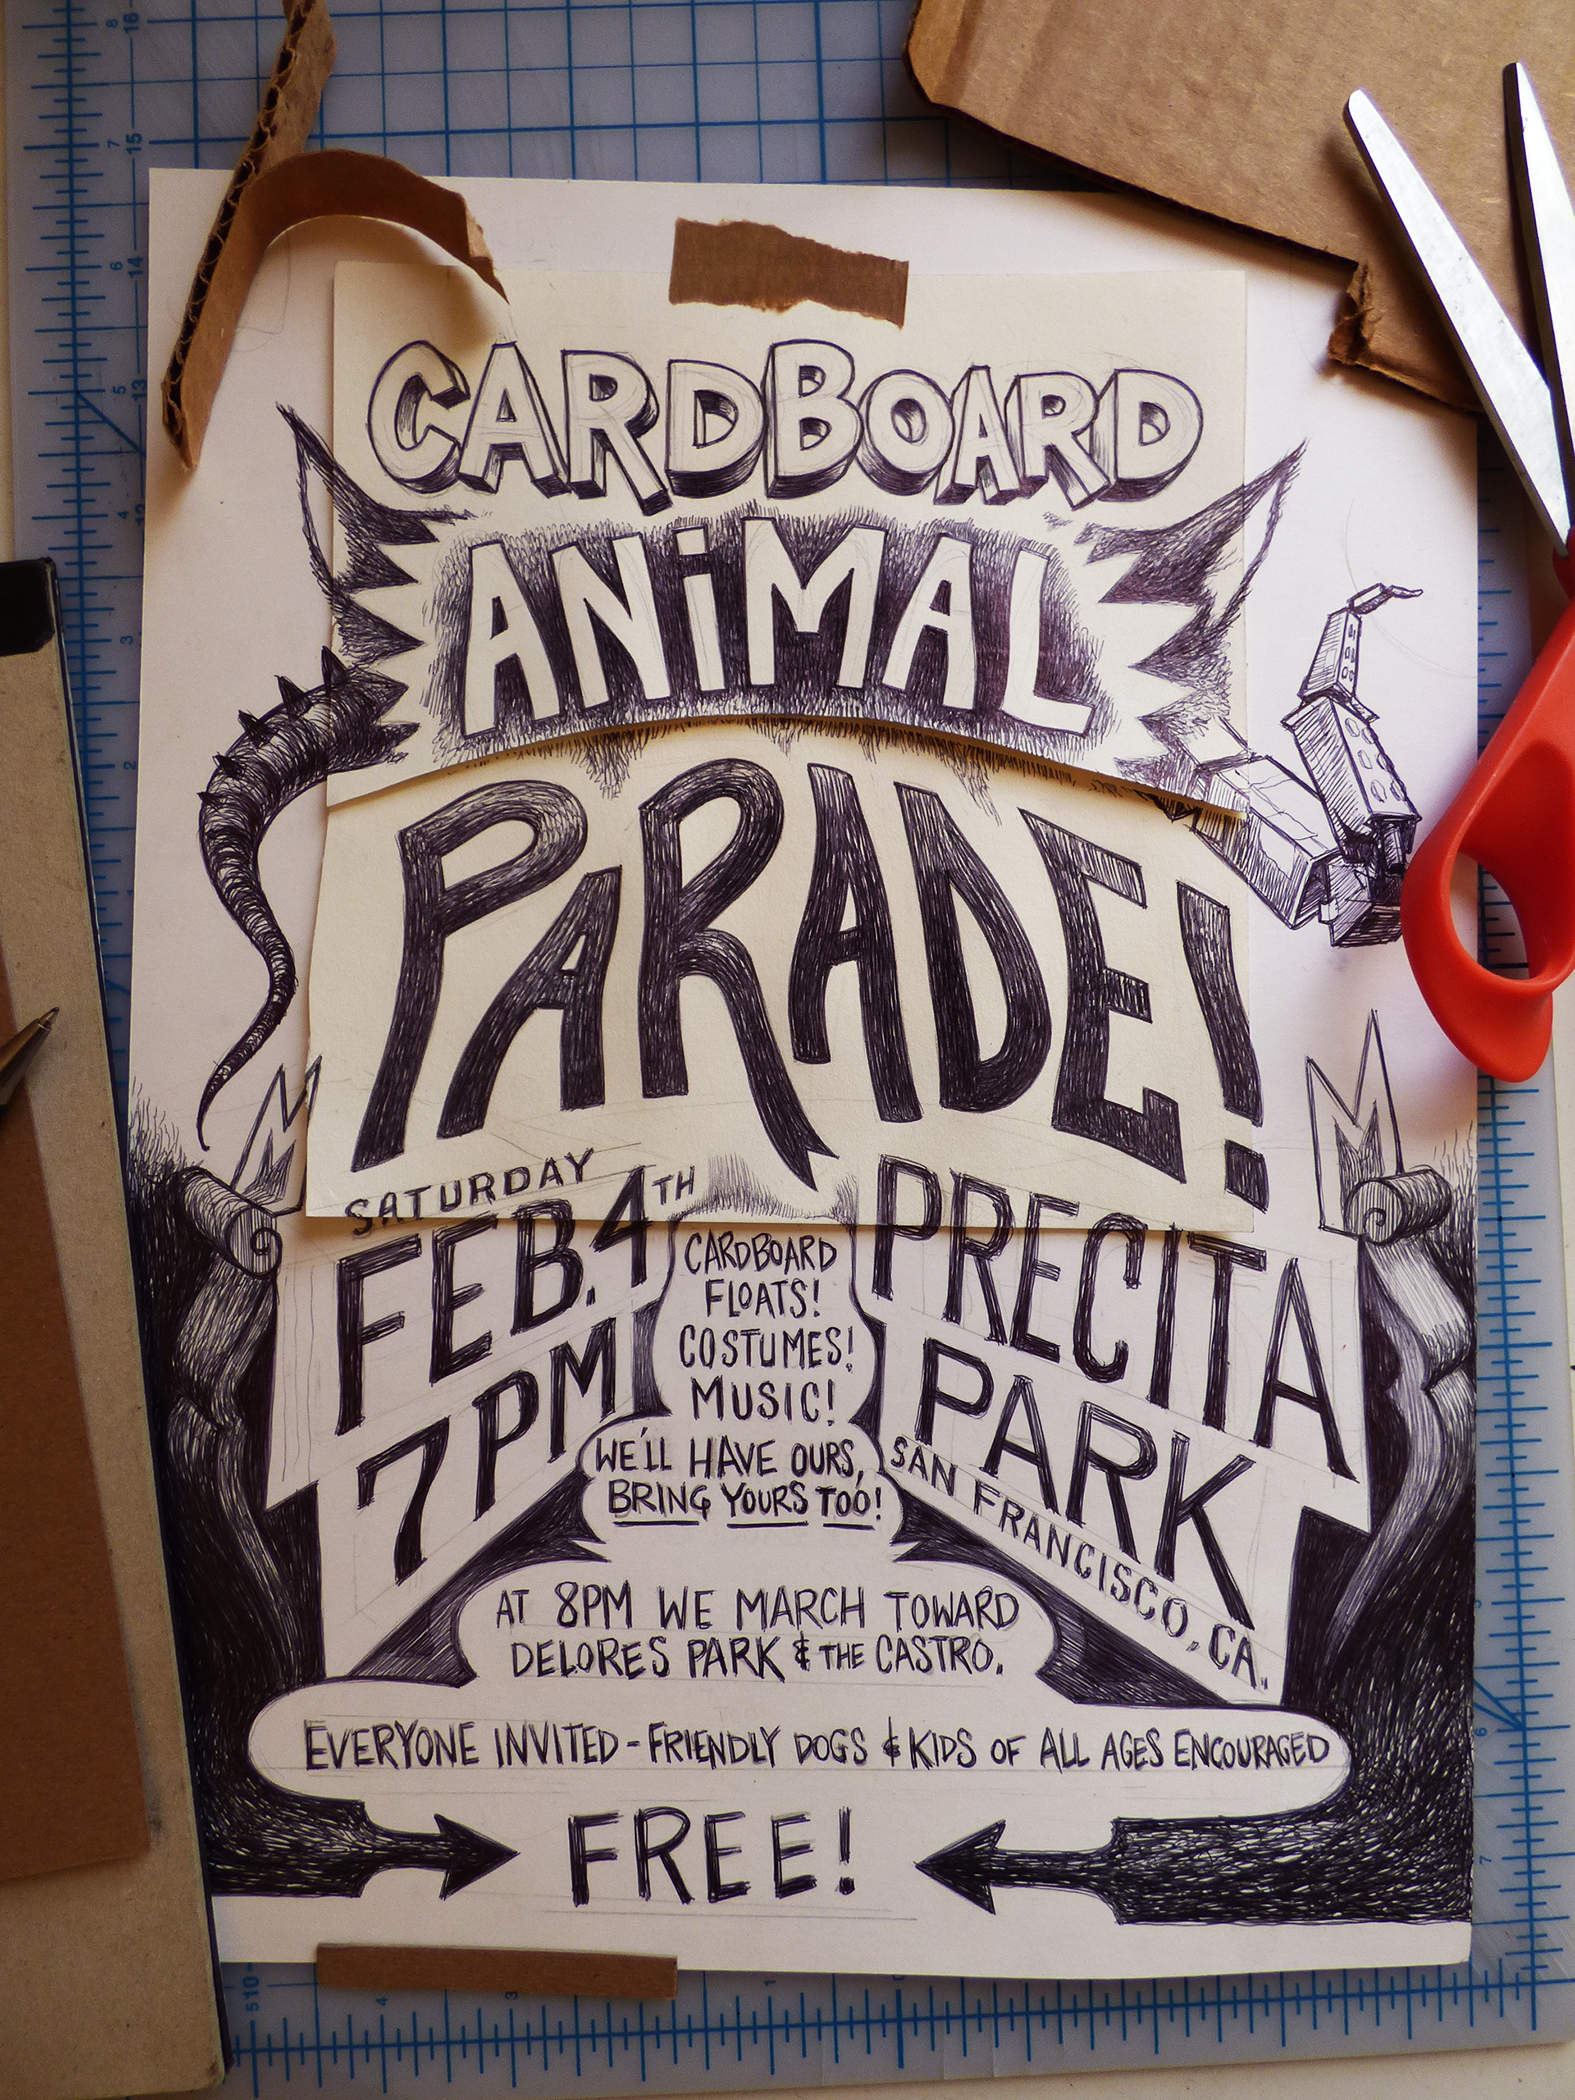 CARDBOARD
ANiMAL
PARADE!
SATURDAY
FEB. 4TH
7PM
CARDBOARD
FLOATS!
COSTUMES!
MUSIC!
WE'LL HAVE OURS,
BRING YOURS TOO!
PRECITA
PARK
SAN FRANCISCO, CA.
AT 8PM WE MARCH TOWARD
DELORES PARK & THE CASTRO.
EVERYONE INVITED - FRIENDLY DOGS & KIDS OF ALL AGES ENCOURAGED
FREE!